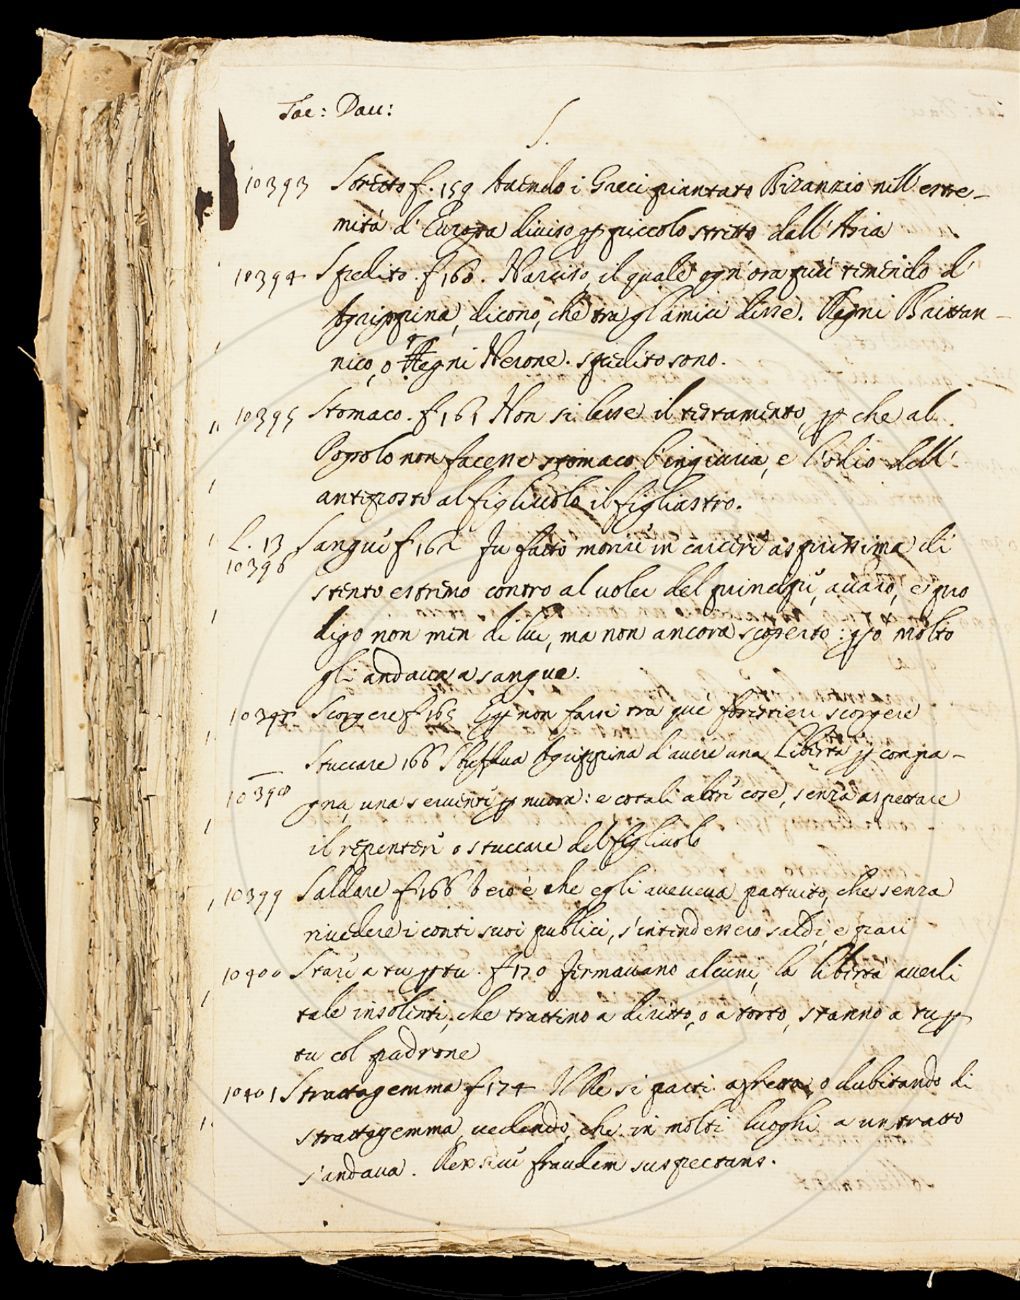 Tac: Dav:
S.
10393 Stretto f. 159 Avendo i Greci piantato Bizanzio nell' estre-
mità d' Europa diviso p piccolo stretto dall' Asia
10394 Spedito. f 160. Narciso, il quale ogn' ora più temendo d'
Agrippina, dicono, che tra gl' amici disse. Regni Brittan-
nico, o Regni Nerone. spedito sono.
10395 Stomaco. f 161 Non si lesse il testamento, p che al
Popolo non facesse stomaco l' ingiuria, e l' odio dell'
antiposto al figliuolo il figliastro.
L. 13 Sangue f 162 Fu fatto morire in carcere asprissima di
10396
stento estremo contro al voler del principe, avaro, e pro
digo non men di lui, ma non ancora scoperto: pò molto
gli andava a sangue.
10397 Scorgere f 165 E p non farsi tra que' forestieri scorgere
Stuccare 166 Agrippina d' avere una Liberta p compa-
10398
gna, una servente p nuora: e cotali altre cose, senza aspettare
il repentere o stuccare del figliuolo
10399 Saldare f 166 b cio è che egli aveva pattuito, che senza
rivedere i conti suoi publici, s' intendessero saldi, e pari
10400 Stare a tu p tu. f 170 Fermavano alcuni, la libertà averli
tale insolenti, che trattino a diritto, o a torto, stanno a tu p
tu col padrone
10401 Strattagemma f 174 Il Re si partì a fretta, o dubitando di
strattagemma, vedendo, che in molti luoghi a un tratto
s' andava. Rex sive fraudem suspectans.